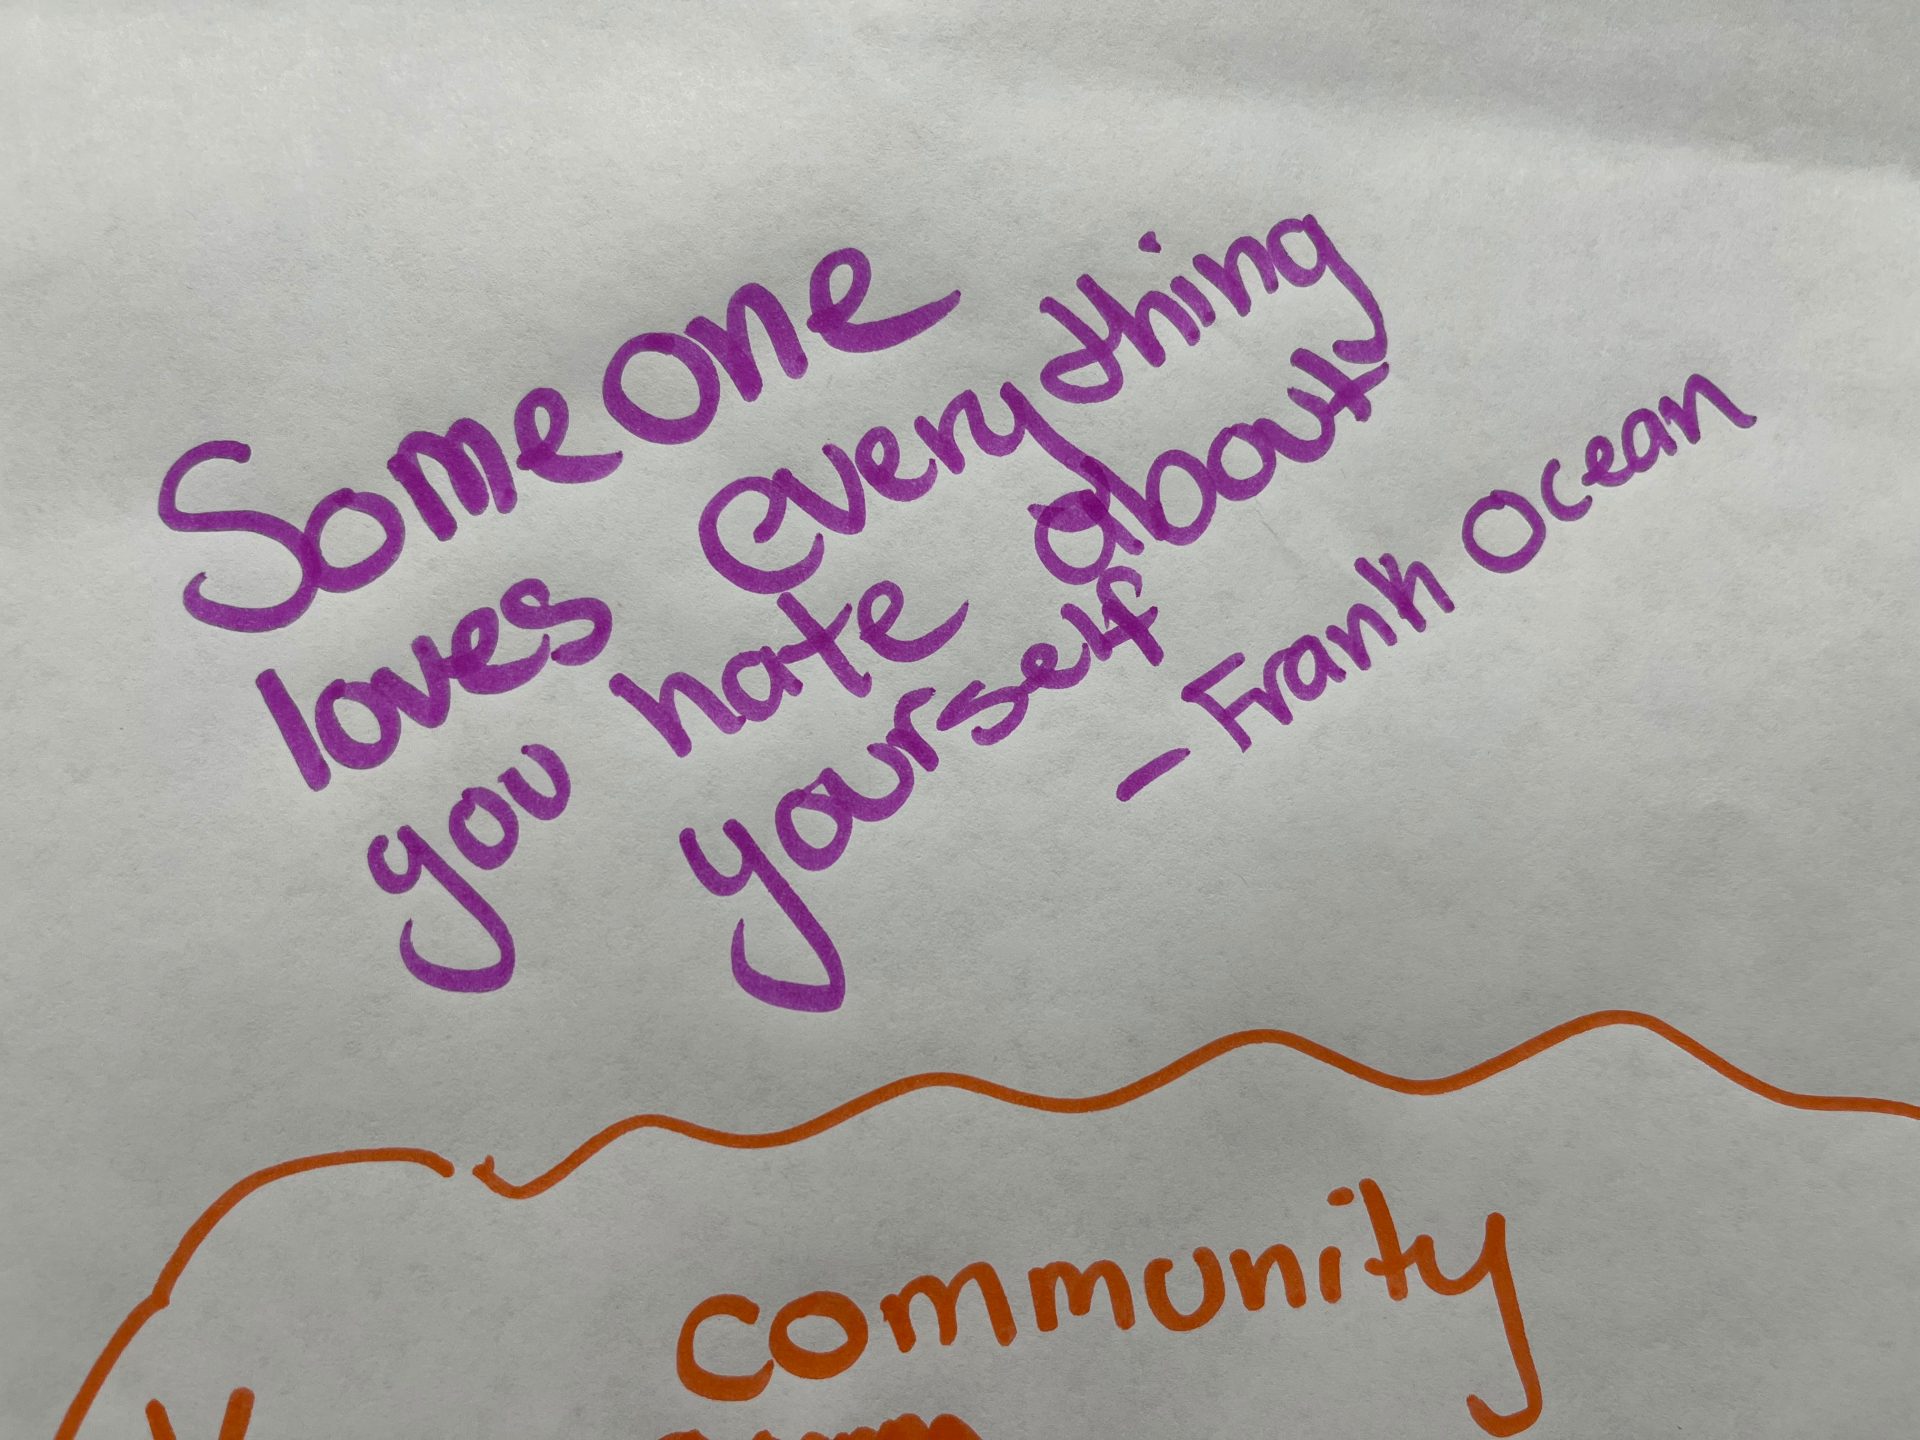 Someone
loves everything
you hate about
yourself
- Frank Ocean
community